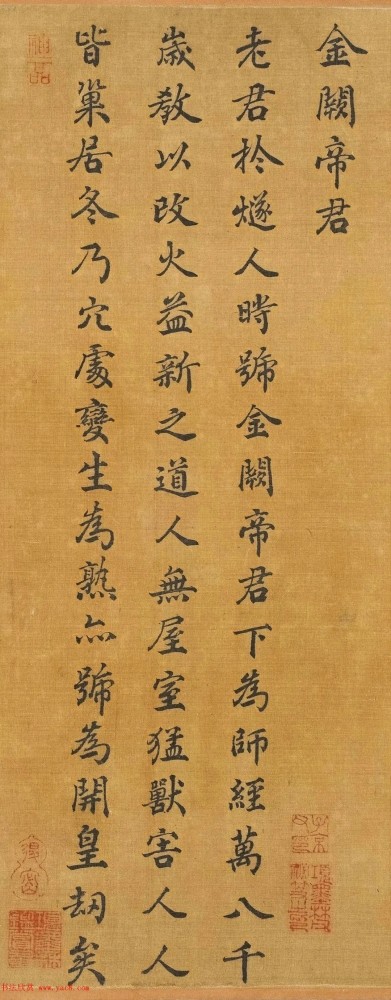 金闕帝君
老君於燧人時號金闕帝君下為師經萬八千
嵗教以改火益新之道人無屋室猛獸害人人
皆巢居冬乃穴處變生為熟亦號為開皇劫矣
书法欣赏 www.yac8.com